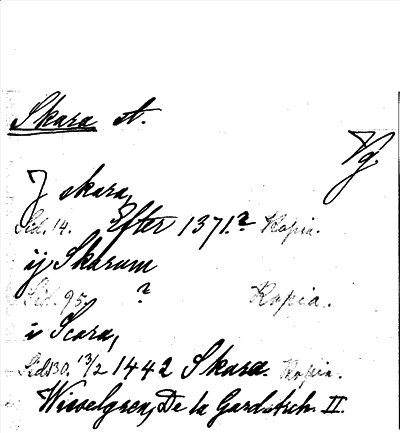 Skara st.
Vg
J skara,
Sid. 14. Efter 1371.? Kopia.
ij Skarum
Sid. 95. ? Kopia.
i Scara,
Sid 130. 13/2 1442 Skara. Kopia.
Wieselgren, De la Gard. Arch. II.